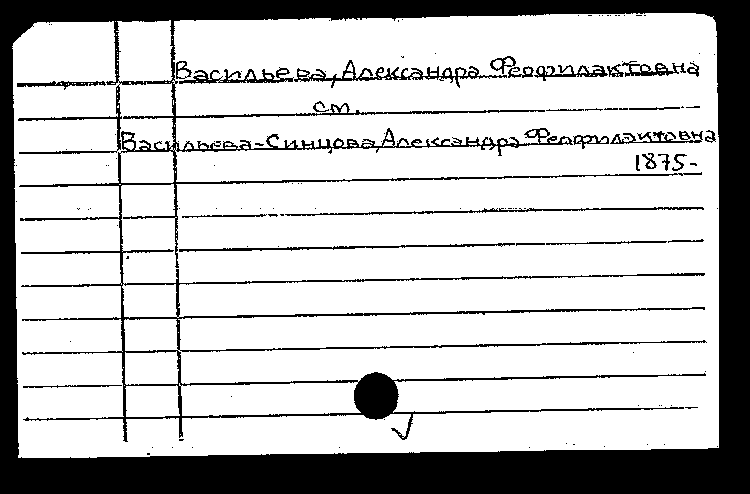 Васильева, Александра Феофилактовна
см.
Васильева-Синцова, Александра Феофилактовна
1875-